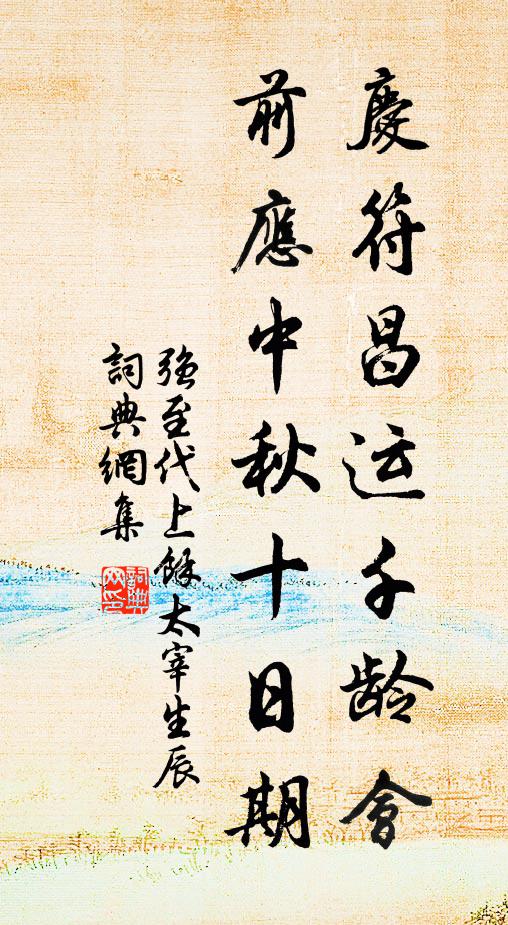 慶符昌运千龄會
前應中秋十日期
强至代上餘太宰生辰
詞典網集
詞典網印